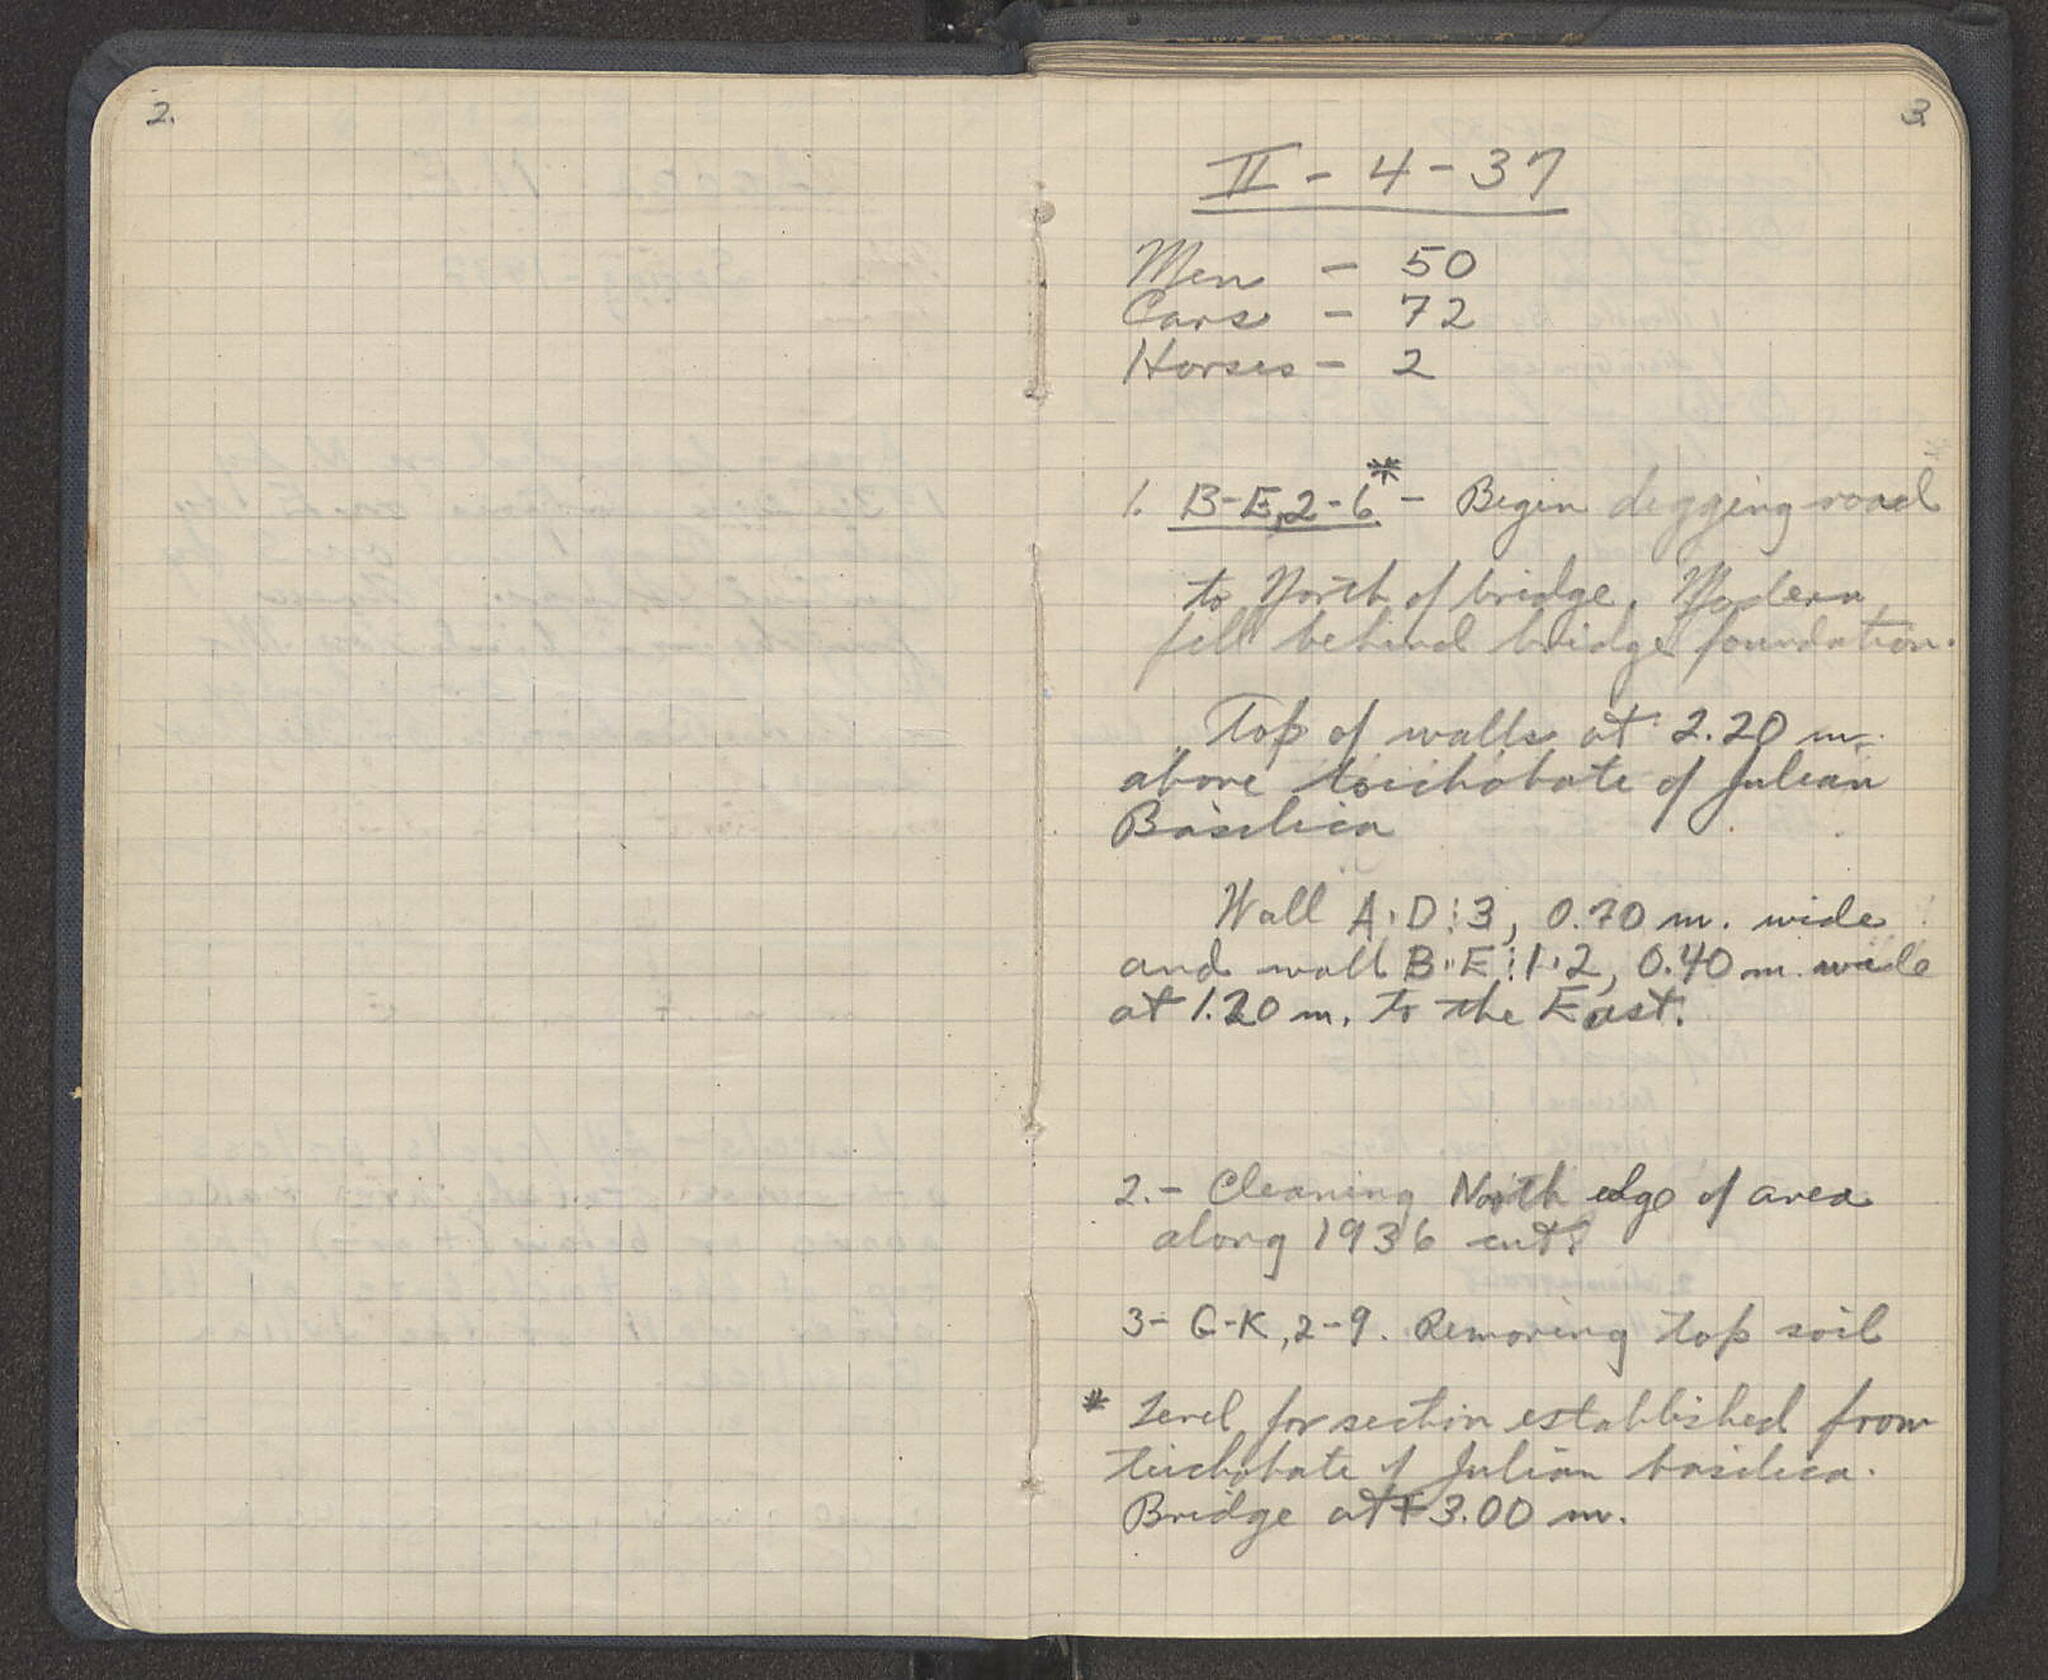 2.
3.
II - 4 - 37
Men - 50
Cars - 72
Horses - 2
1. B-E, 2-6* - Begin digging road
to North of bridge. Modern
fill behind bridge foundation.
Top of walls at 2.20 m.
above toichobate of Julian
Basilica
Wall A·D:3, 0.70 m. wide
and wall B··E:1·2, 0.40 m. wide
at 1.20 m. to the East.
2.- Cleaning North edge of area
along 1936 cut.
3- G-K, 2-9. Removing top soil
* Level for section established from
toichobate of Julian basilica.
Bridge at + 3.00 m.